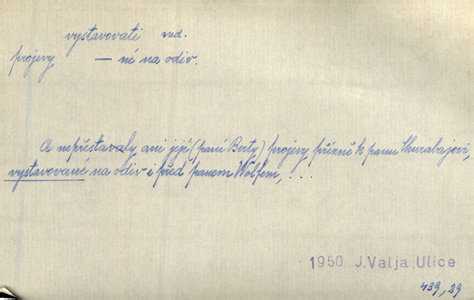 vystavovati ned.
projevy — né na odiv.
A nepřestavaly ani její (paní Berty) projevy přízně k panu
vystavované na odiv i před panem Wolfem, . . .
1950 J.Valja, Ulice
439, 29